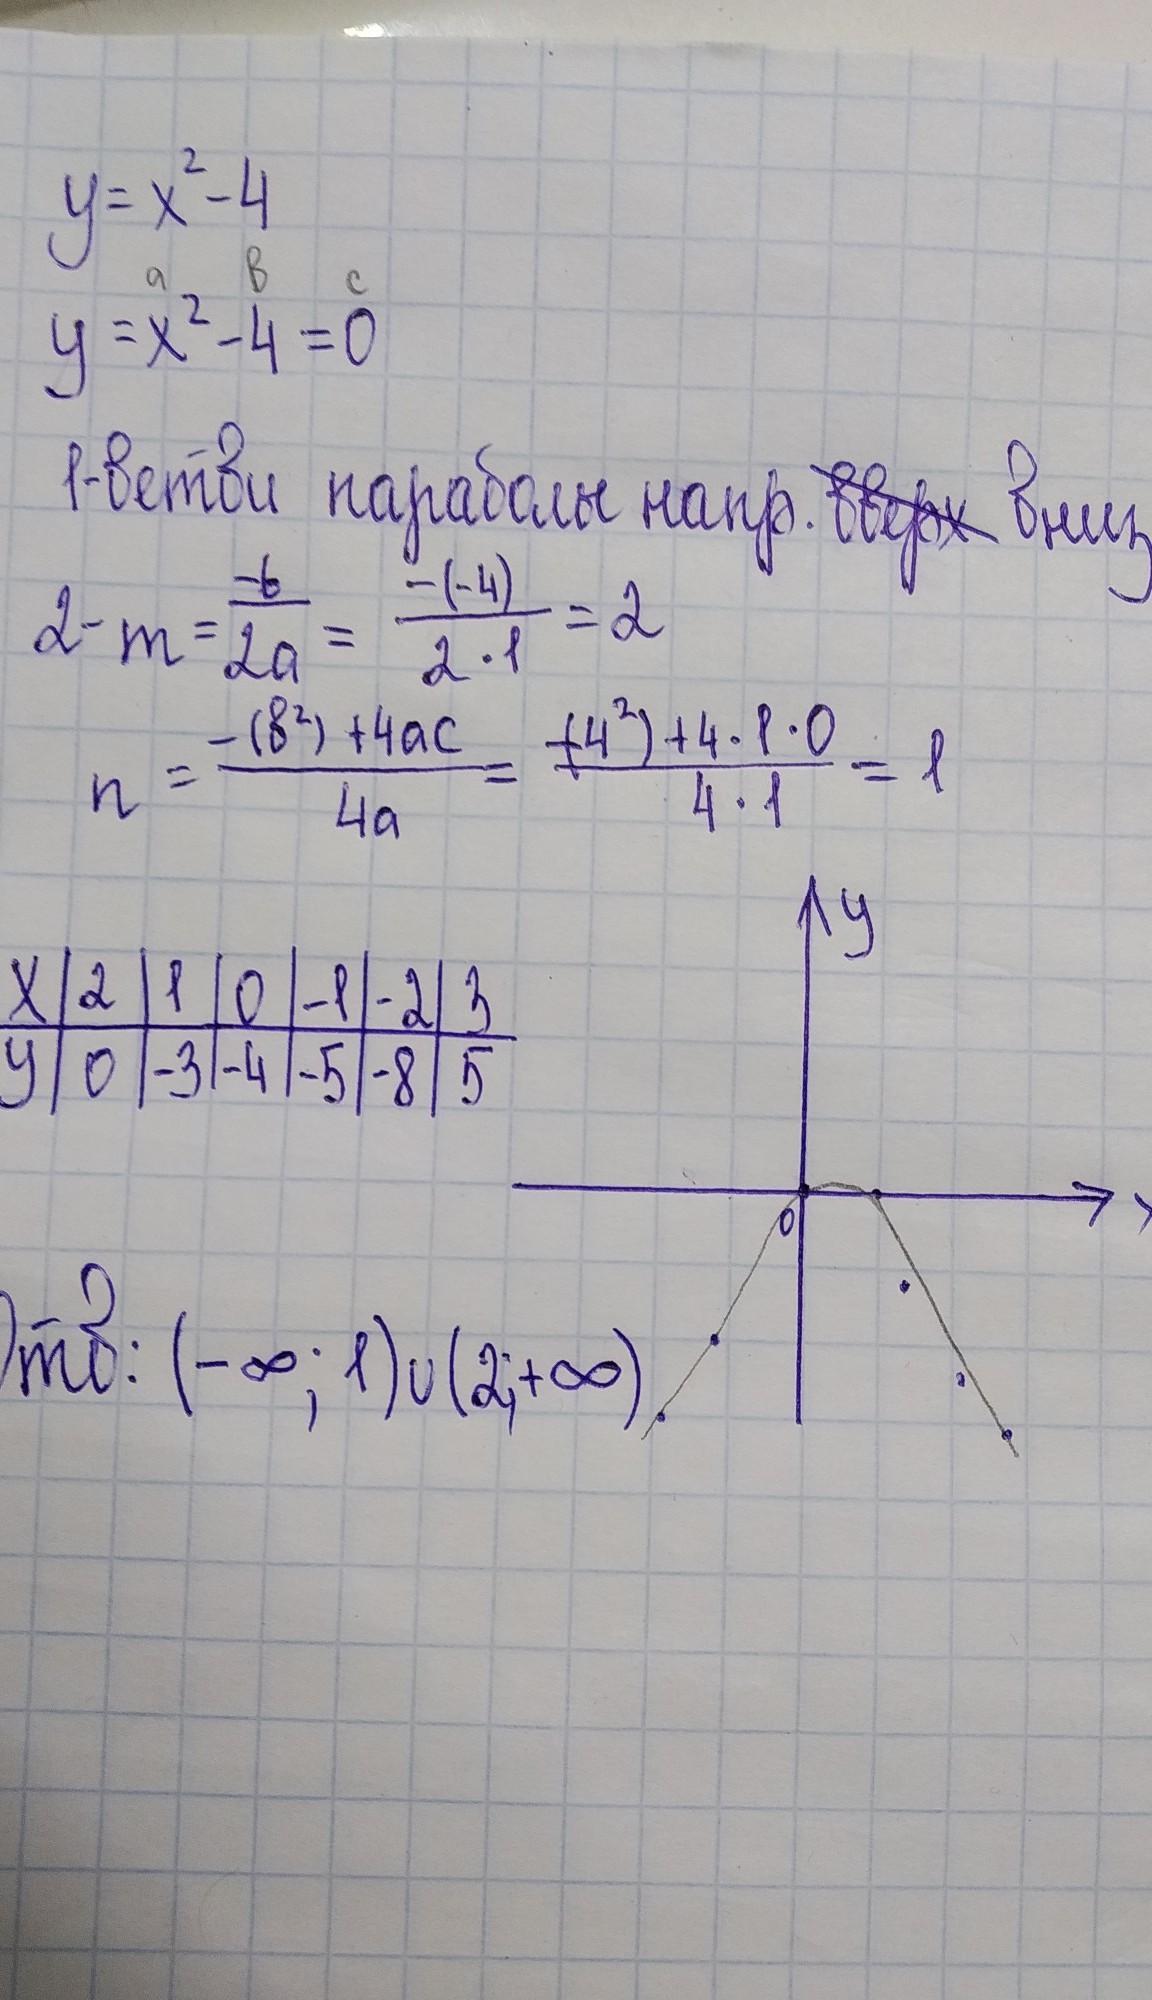 y = x² - 4
a в c
y = x² - 4 = 0
1-ветви параболы напр. вверх вниз
2- m = -b/2a = -(-4)/2·1 = 2
n = -(в²)+4ac/4a = -(4²)+4·1·0/4·1 = 1
y
x | 2 | 1 | 0 | -1 | -2 | 3
y | 0 | -3 | -4 | -5 | -8 | 5
x
0
Отв: (-∞; 1)∪(2;+∞)